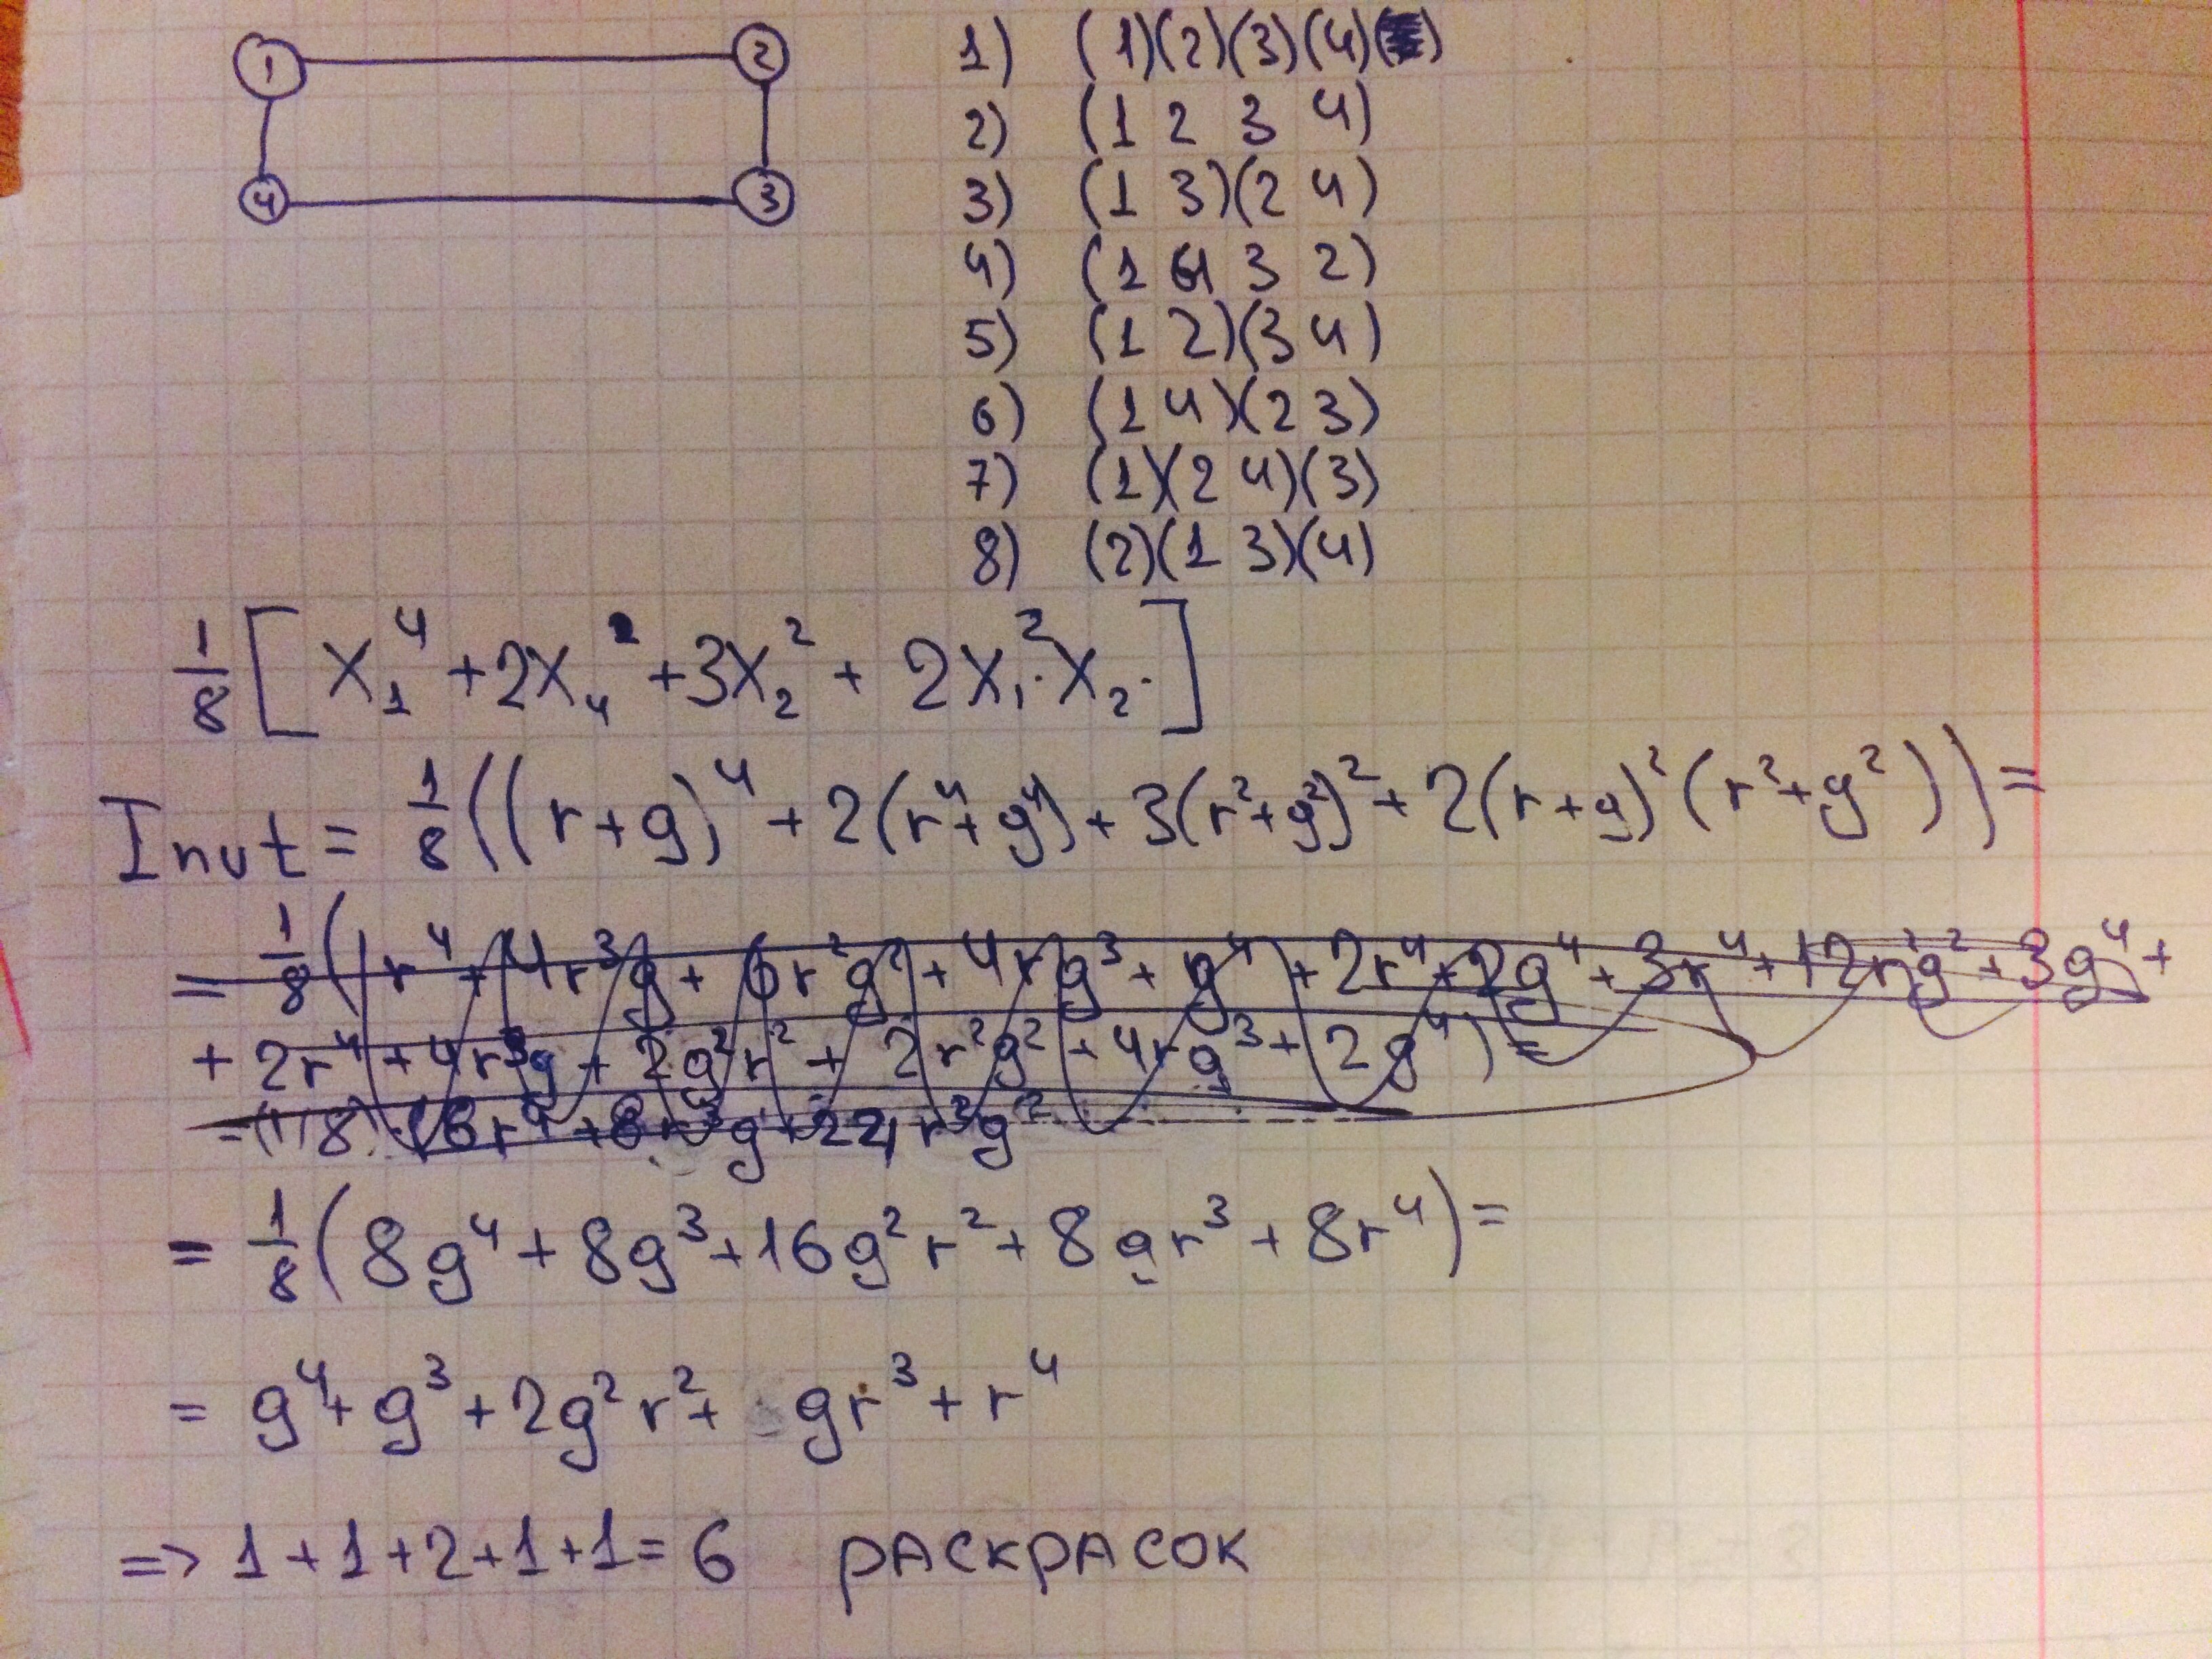 1 2
4 3
1) (1)(2)(3)(4)
2) (1 2 3 4)
3) (1 3)(2 4)
4) (1 4 3 2)
5) (1 2)(3 4)
6) (1 4)(2 3)
7) (1)(2 4)(3)
8) (2)(1 3)(4)
1/8 [x₁⁴ + 2x₄ + 3x₂² + 2x₁²·x₂·]
Invt = 1/8((r+g)⁴ + 2(r⁴+g⁴) + 3(r²+g²)² + 2(r+g)²(r²+g²)) =
= 1/8(r⁴ + 4r³g + 6r²g² + 4rg³ + g⁴ + 2r⁴ + 2g⁴ + 3r⁴ + 12r²g² + 3g⁴ +
+ 2r⁴ + 4r³g + 2g²r² + 2r²g² + 4rg³ + 2g⁴) =
= 1/8(8g⁴ + 8g³ + 16g²r² + 8gr³ + 8r⁴) =
= g⁴ + g³ + 2g²r² + gr³ + r⁴
=> 1+1+2+1+1=6 РАСКРАСОК